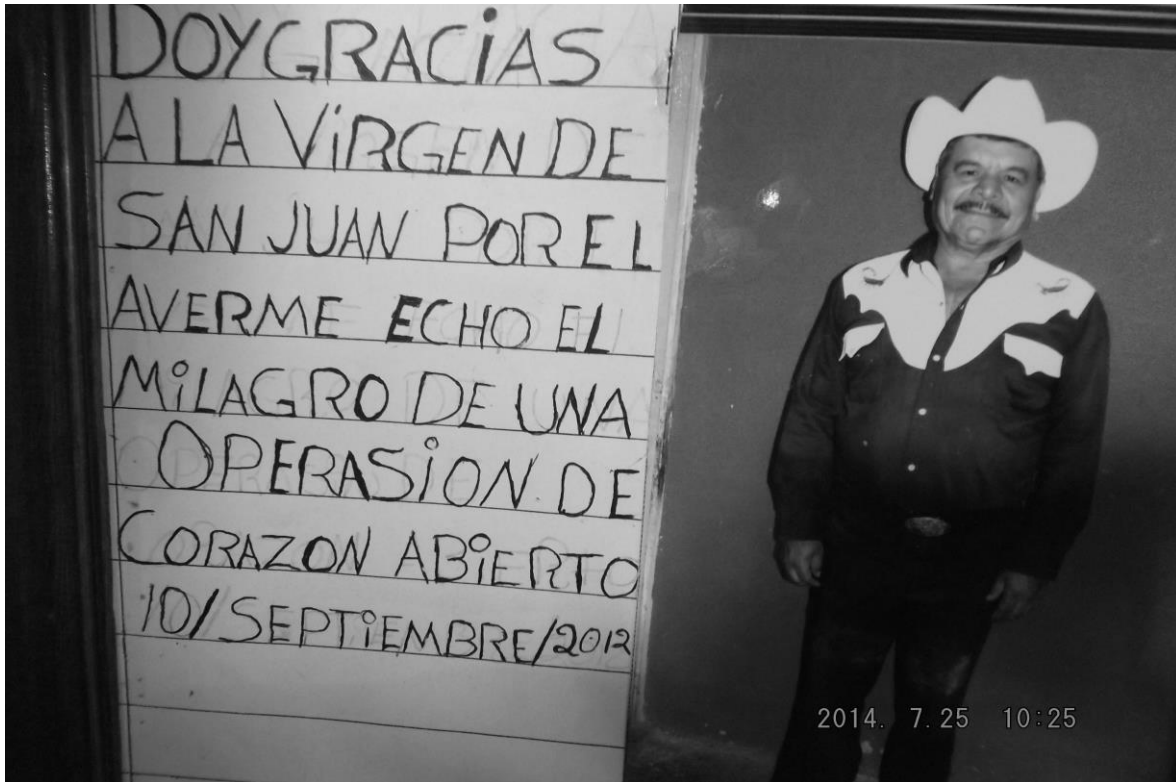 DOY GRACiAS
A LA ViRGEN DE
SAN JUAN POR EL
AVERME ECHO EL
MiLAGRO DE UNA
OPERASiON DE
CORAZON ABiERTO
10/SEPTiEMBRE/2012
2014. 7.25 10:25